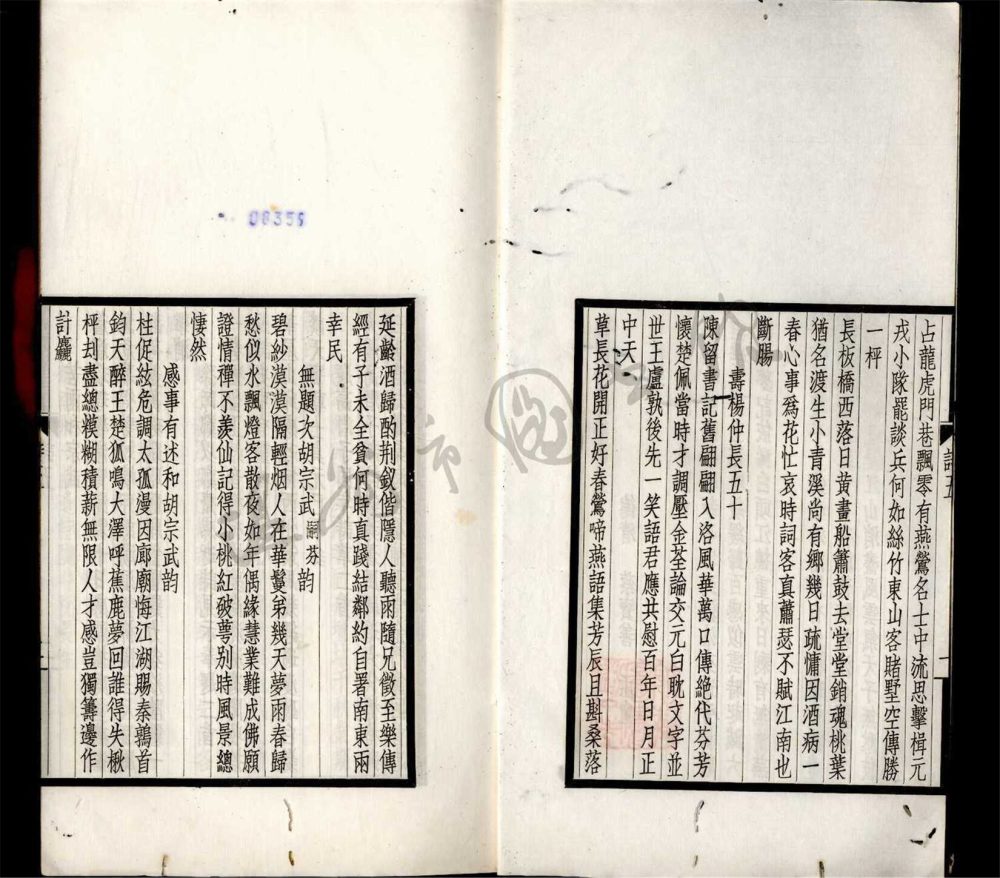 占龍虎門巷飄零有燕鶯名士中流思擊楫元
戎小隊罷談兵何如絲竹東山客賭墅空傳勝
一枰
長板橋西落日黃畫船簫鼓去堂堂銷魂桃葉
猶名渡生小青溪尚有鄉幾日疏慵因酒病一
春心事爲花忙哀時詞客真蕭瑟不賦江南也
斷腸
壽楊仲長五十
陳留書記舊翩翩入洛風華萬口傳絶代芬芳
懷楚佩當時才調壓金荃論交元白耽文字並
世王盧孰後先一笑語君應共慰百年日月正
中天
草長花開正好春鶯啼燕語集芳辰且斟桑落
延齡酒歸酌荆釵偕隱人聽雨隨兄徵至樂傳
經有子未全貧何時真踐結鄰約自署南東兩
幸民
無題次胡宗武嗣芬韵
碧紗漠漠隔輕烟人在華鬘弟幾天夢雨春歸
愁似水飄燈客散夜如年偶緣慧業難成佛願
證情禪不羨仙記得小桃紅破萼别時風景總
悽然
感事有述和胡宗武韵
柱促絃危調太孤漫因廊廟悔江湖賜秦鶉首
鈞天醉王楚狐鳴大澤呼蕉鹿夢回誰得失楸
枰刦盡總模糊積薪無限人才感豈獨籌邊作
計麤
08355